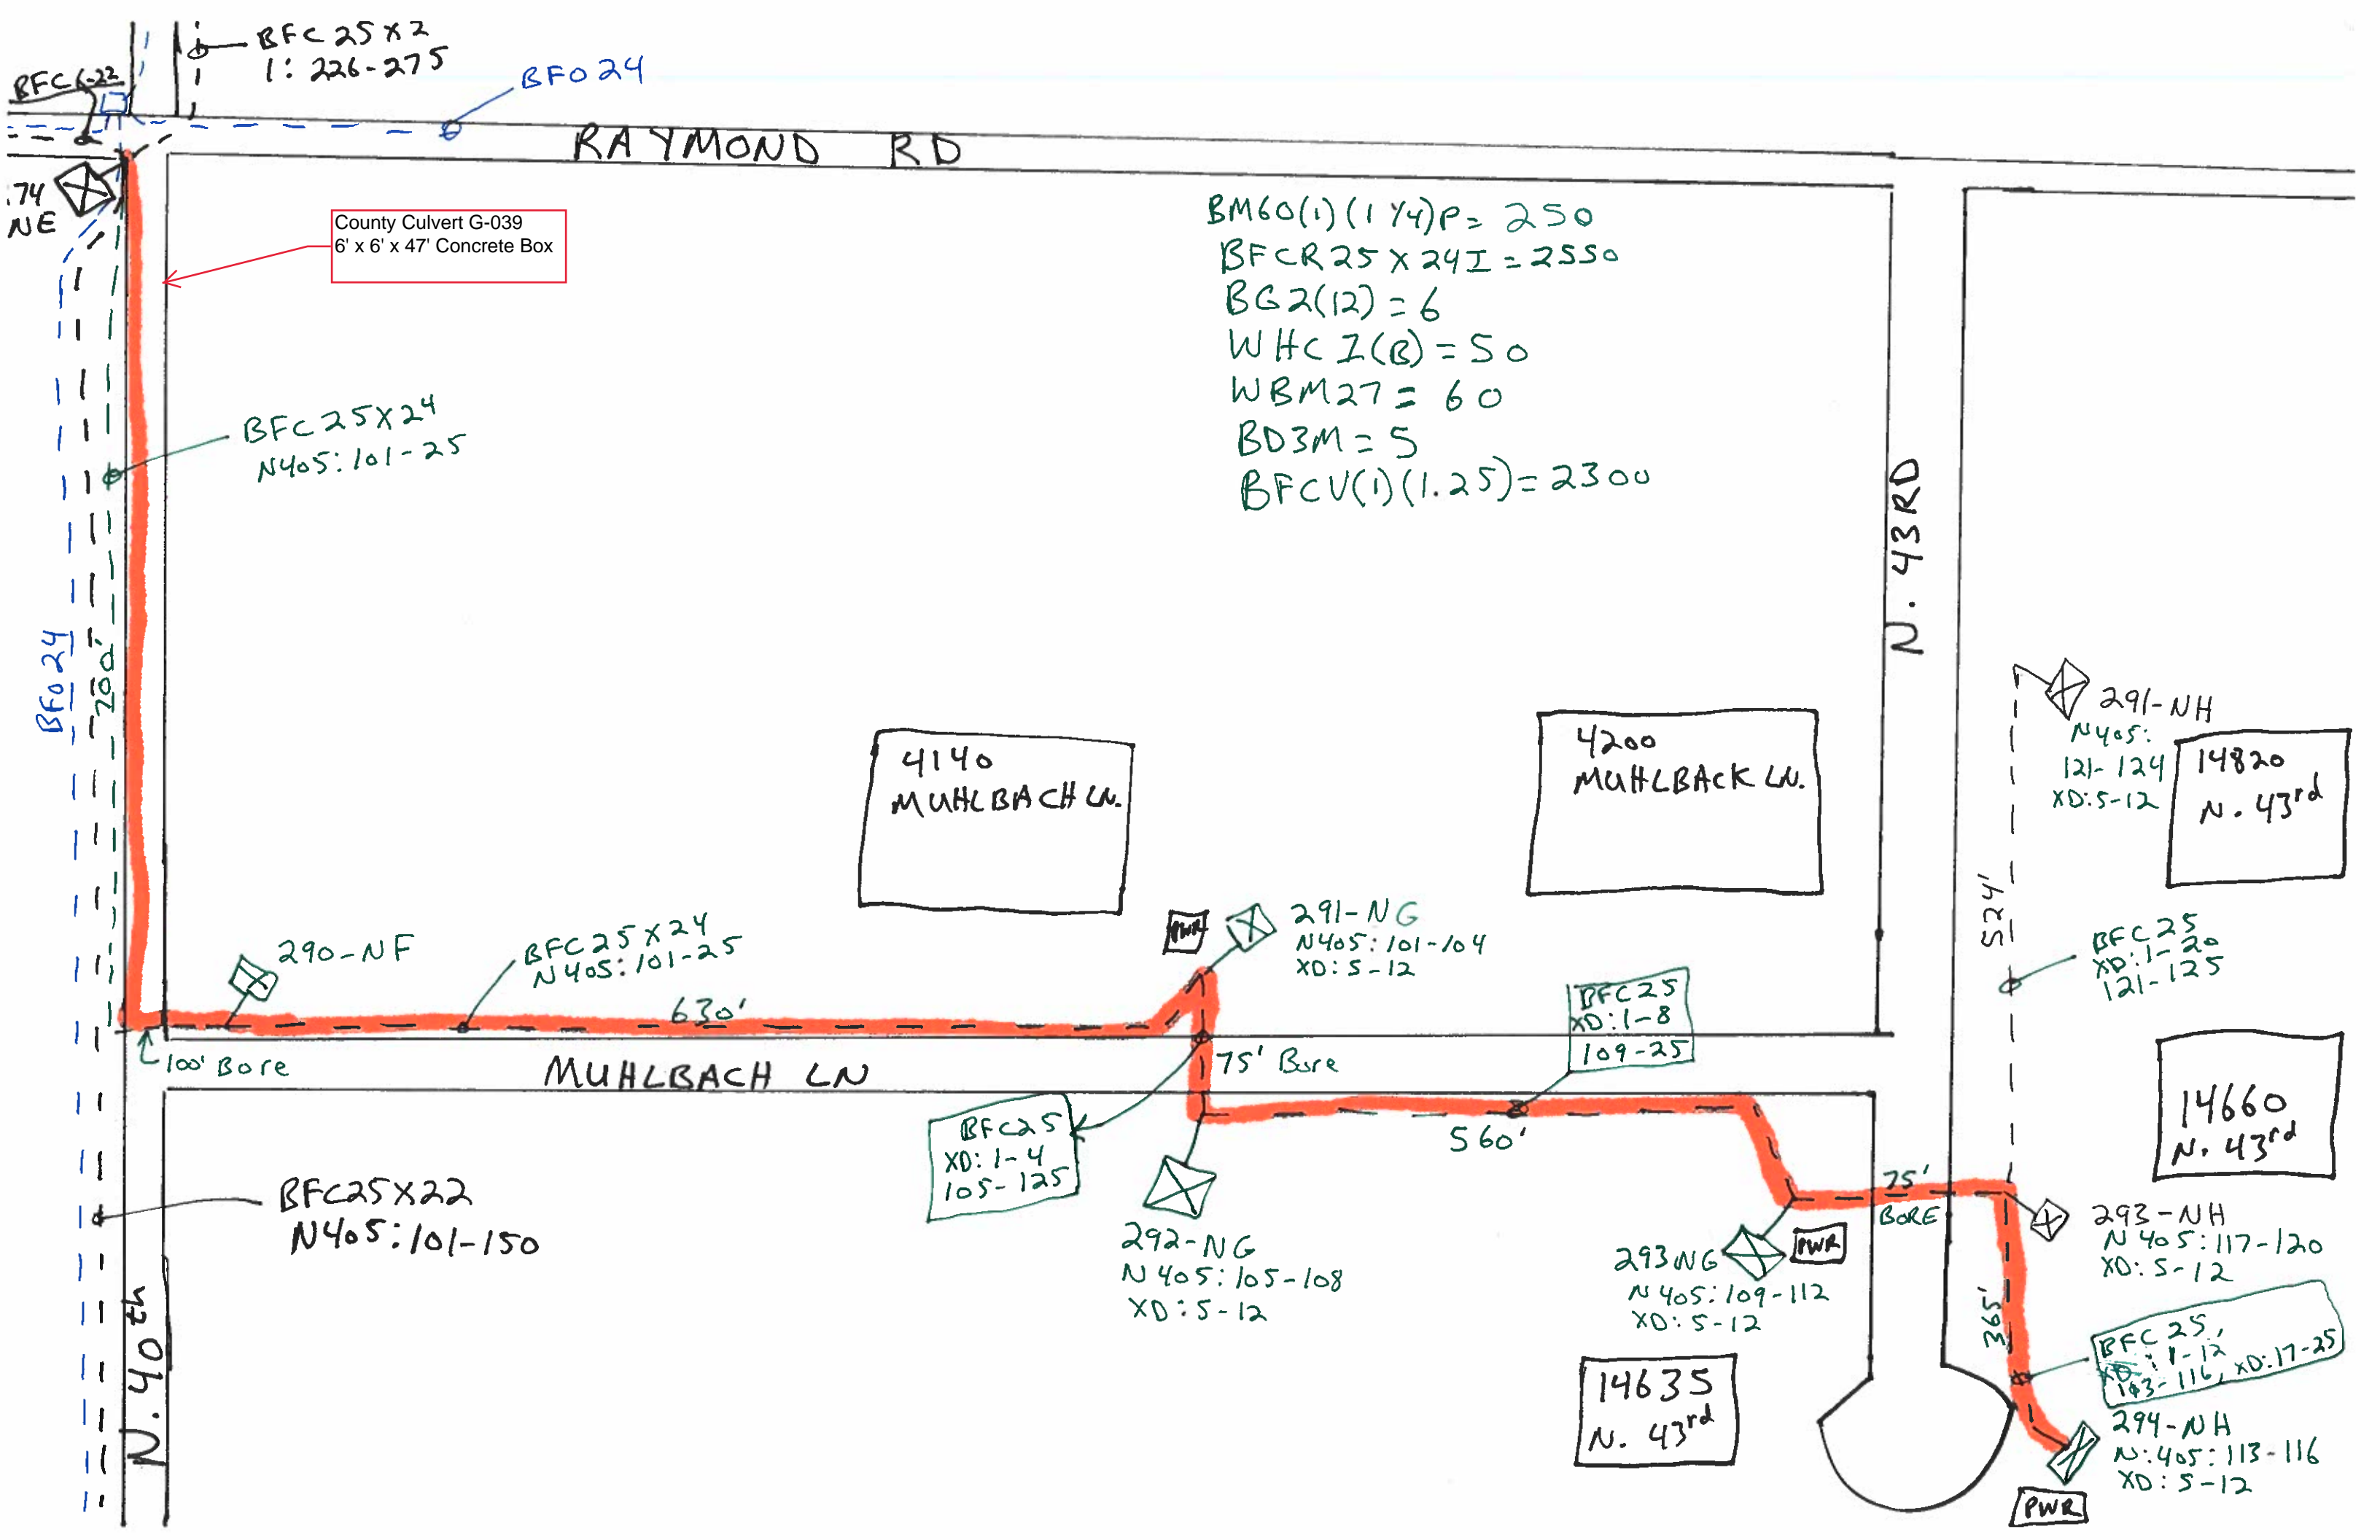 BFC 25 X 2
1: 226-275
BFC 6-22
BFO 24
RAYMOND RD
.74
NE
County Culvert G-039
6' x 6' x 47' Concrete Box
BM60(1)(1 1/4)P= 250
BFCR25 X 24I = 2550
BG2(12) = 6
WHC I(B) = 50
WBM27 = 60
BD3M = 5
BFCV(1)(1.25) = 2300
BFC 25X24
N405:101-25
N. 43RD
BFO 24
4140
MUHLBACH LN.
4200
MUHLBACK LN.
291-NH
N405:
121-124
XD:5-12
14820
N. 43rd
290-NF
BFC 25 X 24
N405:101-25
630'
PWR
291-NG
N405:101-104
XD: 5-12
BFC 25
XD:1-8
109-25
524'
BFC 25
XD:1-20
121-125
100' Bore
MUHLBACH LN
75' Bore
BFC25
XD: 1-4
105-125
560'
14660
N. 43rd
BFC25X22
N405:101-150
292-NG
N405:105-108
XD:5-12
75'
BORE
293NG
PWR
N405:109-112
XD:5-12
293-NH
N405:117-120
XD: 5-12
365'
BFC 25,
1-12
113-116, XD:17-25
N. 40th
14635
N. 43rd
294-NH
N:405:113-116
XD: 5-12
PWR